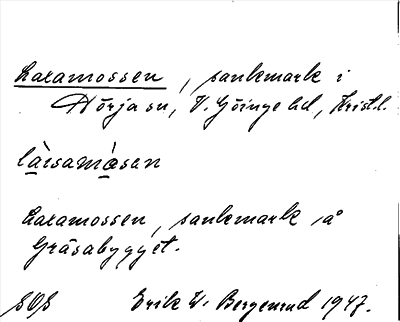 Laxamossen, sankmark i
Hörja sn, V. Göinge hd, Krist.l.
làısamåsen
Laxamossen, sankmark på
Gräsabygget.
SOS Erik W. Bergenrud 1947.